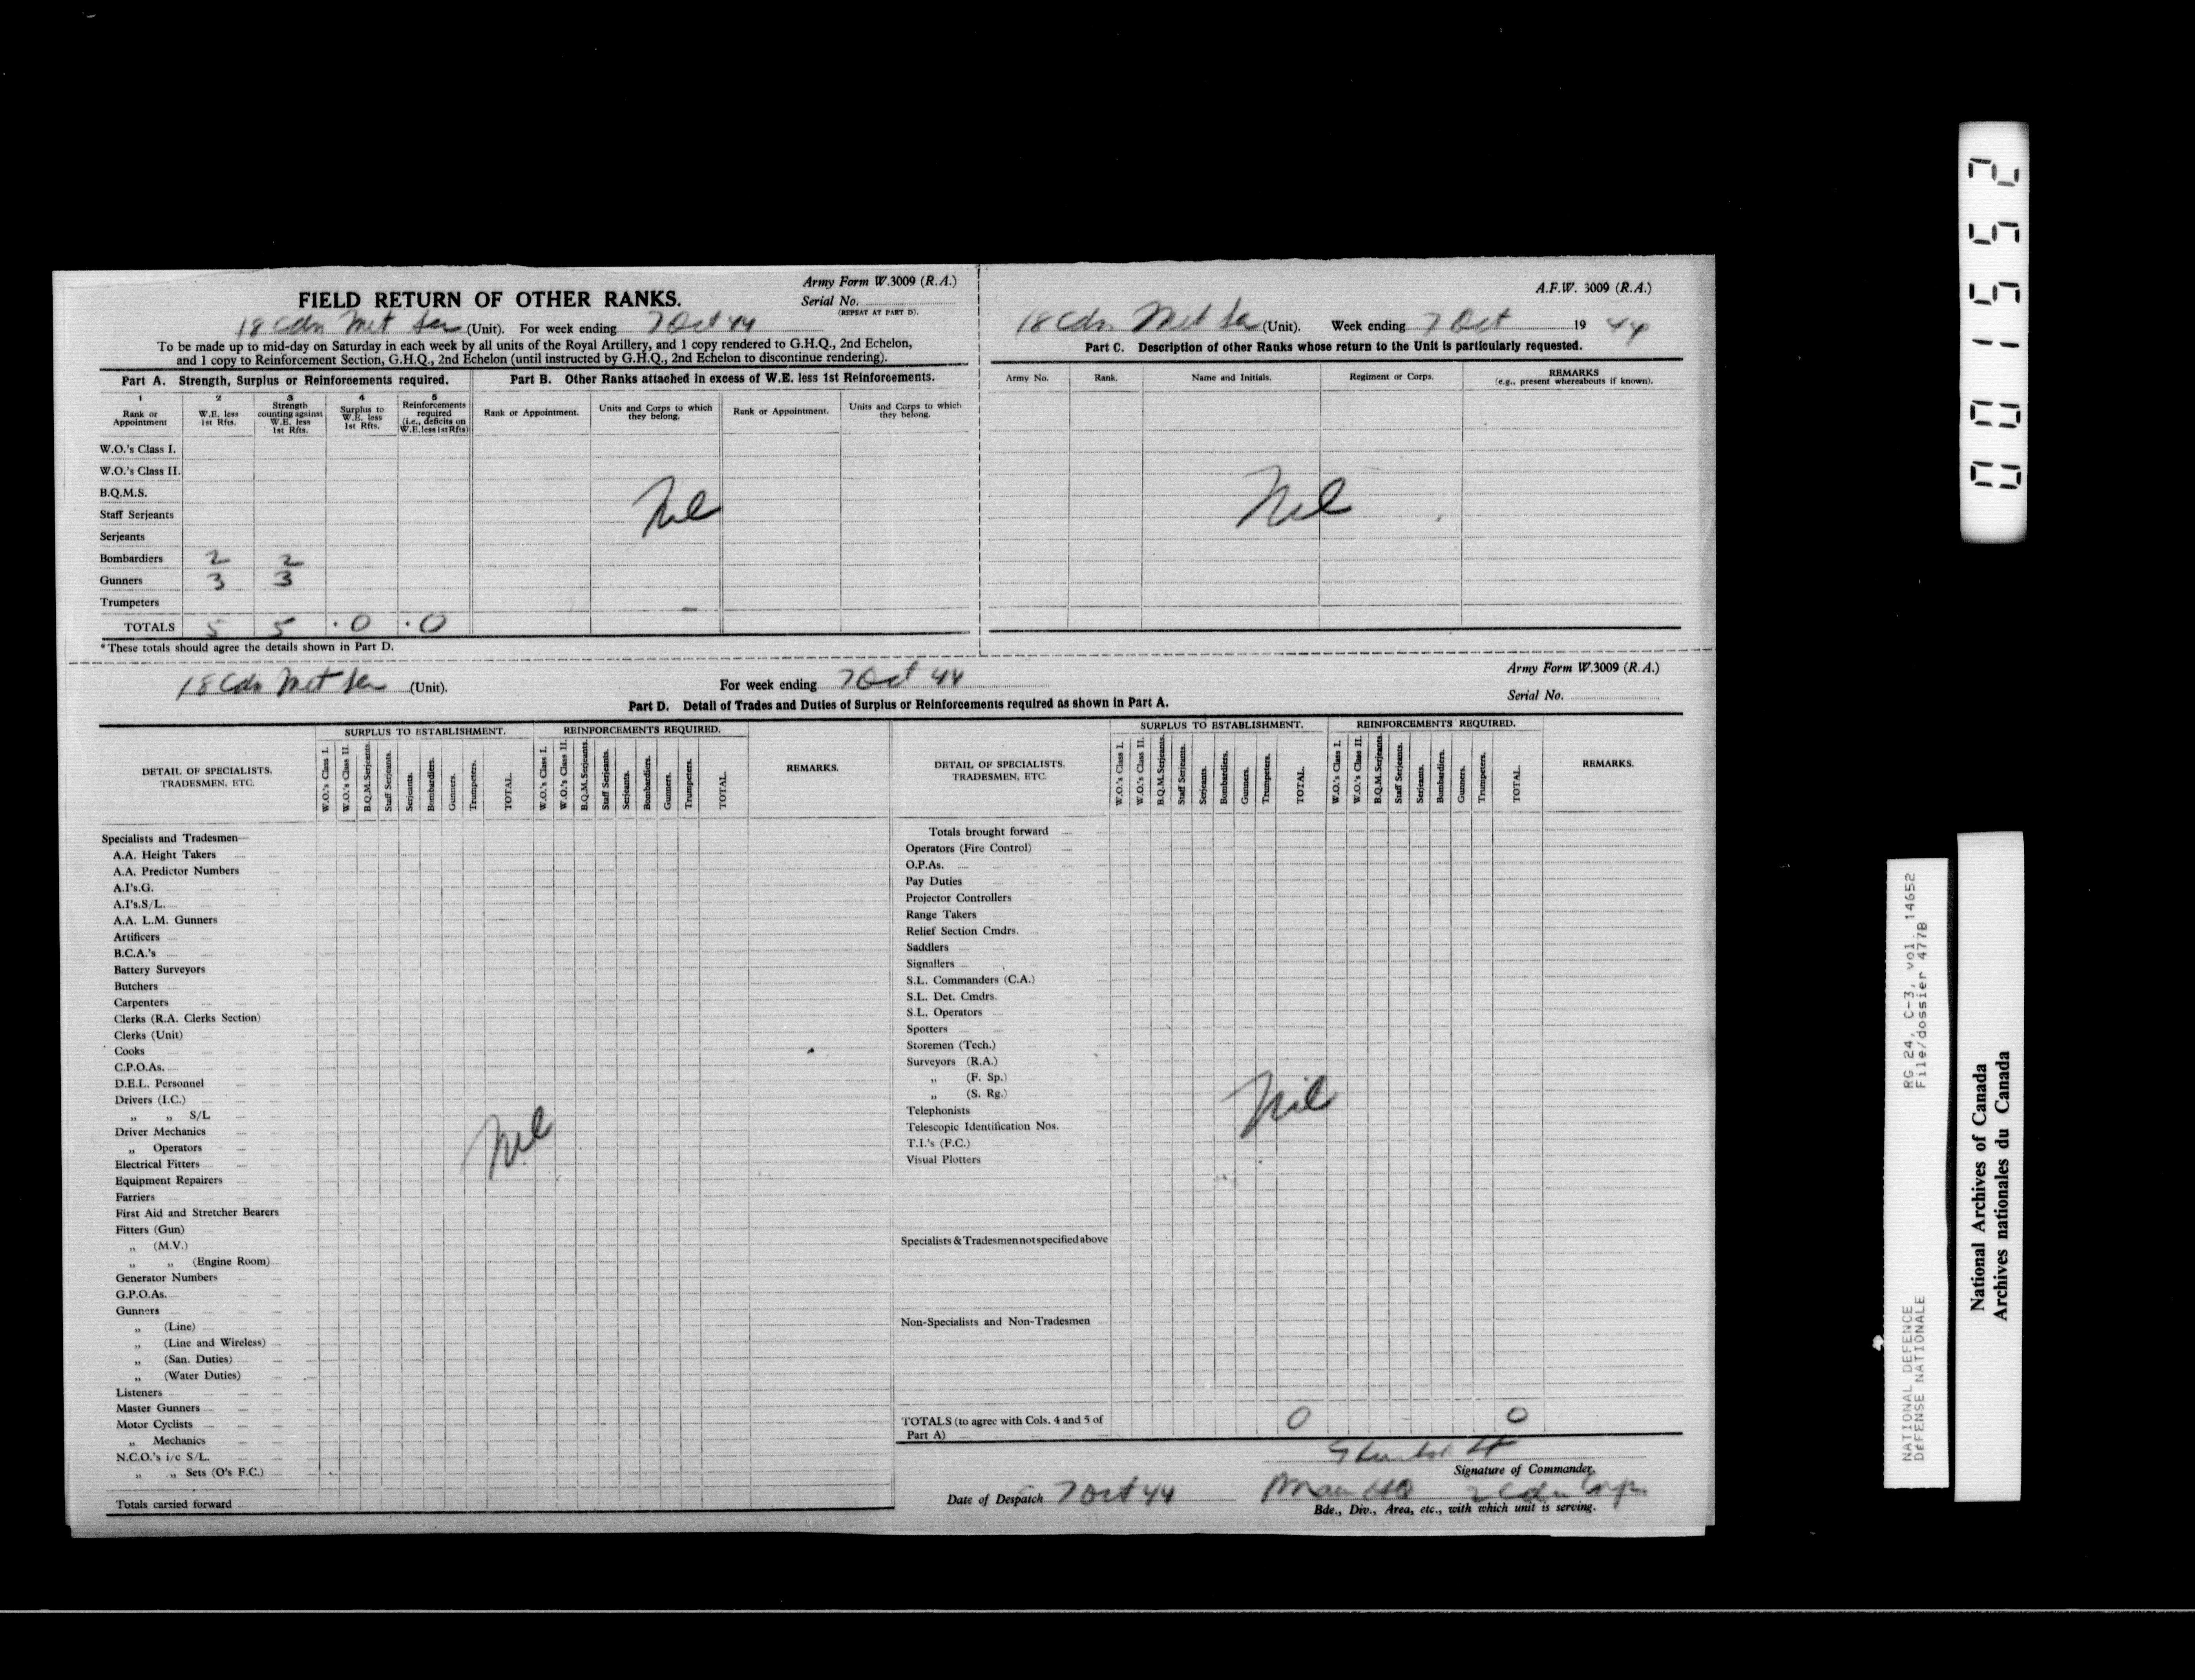 Army Form W.3009 (R.A.)
FIELD RETURN OF OTHER RANKS.
Serial No.
(REPEAT AT PART D).
18 Cdn Met Sec (Unit). For week ending 7 Oct 44
To be made up to mid-day on Saturday in each week by all units of the Royal Artillery, and 1 copy rendered to G.H.Q., 2nd Echelon,
and 1 copy to Reinforcement Section, G.H.Q., 2nd Echelon (until instructed by G.H.Q., 2nd Echelon to discontinue rendering).
Part A. Strength, Surplus or Reinforcements required.
1 2 3 4 5
Rank or Appointment
W.E. less 1st Rfts.
Strength counting against W.E. less 1st Rfts.
Surplus to W.E. less 1st Rfts.
Reinforcements required (i.e., deficits on W.E. less 1st Rfts)
W.O.'s Class I.
W.O.'s Class II.
B.Q.M.S.
Staff Serjeants
Serjeants
Bombardiers 2 2
Gunners 3 3
Trumpeters
TOTALS 5 5 · 0 · 0
*These totals should agree the details shown in Part D.
Part B. Other Ranks attached in excess of W.E. less 1st Reinforcements.
Rank or Appointment.
Units and Corps to which they belong.
Rank or Appointment.
Units and Corps to which they belong.
Nil
A.F.W. 3009 (R.A.)
18 Cdn Met Sec (Unit). Week ending 7 Oct 19 44
Part C. Description of other Ranks whose return to the Unit is particularly requested.
Army No.
Rank.
Name and Initials.
Regiment or Corps.
REMARKS
(e.g., present whereabouts if known).
Nil
18 Cdn Met Sec (Unit). For week ending 7 Oct 44
Army Form W.3009 (R.A.)
Serial No.
Part D. Detail of Trades and Duties of Surplus or Reinforcements required as shown in Part A.
DETAIL OF SPECIALISTS, TRADESMEN, ETC.
SURPLUS TO ESTABLISHMENT.
W.O.'s Class I.
W.O.'s Class II.
B.Q.M.Serjeants.
Staff Serjeants.
Serjeants.
Bombardiers.
Gunners.
Trumpeters.
TOTAL.
REINFORCEMENTS REQUIRED.
W.O.'s Class I.
W.O.'s Class II.
B.Q.M.Serjeants.
Staff Serjeants.
Serjeants.
Bombardiers.
Gunners.
Trumpeters.
TOTAL.
REMARKS.
Specialists and Tradesmen—
A.A. Height Takers
A.A. Predictor Numbers
A.I's.G.
A.I's.S/L.
A.A. L.M. Gunners
Artificers
B.C.A.'s
Battery Surveyors
Butchers
Carpenters
Clerks (R.A. Clerks Section)
Clerks (Unit)
Cooks
C.P.O.As.
D.E.L. Personnel
Drivers (I.C.)
„ „ S/L
Driver Mechanics
„ Operators
Electrical Fitters
Equipment Repairers
Farriers
First Aid and Stretcher Bearers
Fitters (Gun)
„ (M.V.)
„ „ (Engine Room)
Generator Numbers
G.P.O.As.
Gunners
„ (Line)
„ (Line and Wireless)
„ (San. Duties)
„ (Water Duties)
Listeners
Master Gunners
Motor Cyclists
„ Mechanics
N.C.O.'s i/c S/L.
„ „ Sets (O's F.C.)
Totals carried forward
Nil
DETAIL OF SPECIALISTS, TRADESMEN, ETC.
SURPLUS TO ESTABLISHMENT.
W.O.'s Class I.
W.O.'s Class II.
B.Q.M.Serjeants.
Staff Serjeants.
Serjeants.
Bombardiers.
Gunners.
Trumpeters.
TOTAL.
REINFORCEMENTS REQUIRED.
W.O.'s Class I.
W.O.'s Class II.
B.Q.M.Serjeants.
Staff Serjeants.
Serjeants.
Bombardiers.
Gunners.
Trumpeters.
TOTAL.
REMARKS.
Totals brought forward
Operators (Fire Control)
O.P.As.
Pay Duties
Projector Controllers
Range Takers
Relief Section Cmdrs.
Saddlers
Signallers
S.L. Commanders (C.A.)
S.L. Det. Cmdrs.
S.L. Operators
Spotters
Storemen (Tech.)
Surveyors (R.A.)
„ (F. Sp.)
„ (S. Rg.)
Telephonists
Telescopic Identification Nos.
T.I.'s (F.C.)
Visual Plotters
Nil
Specialists & Tradesmen not specified above
Non-Specialists and Non-Tradesmen
TOTALS (to agree with Cols. 4 and 5 of Part A) 0 0
Signature of Commander.
Date of Despatch 7 Oct 44
Main HQ 2 Cdn Corps
Bde., Div., Area, etc., with which unit is serving.
001552
NATIONAL DEFENCE RG 24, C-3, vol. 14652
DÉFENSE NATIONALE File/dossier 477B
National Archives of Canada
Archives nationales du Canada